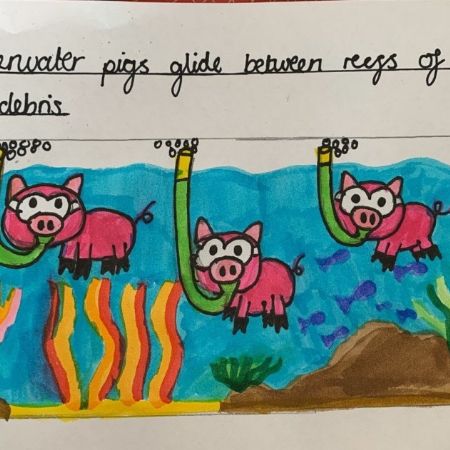 erwater pigs glide between reefs of
debris